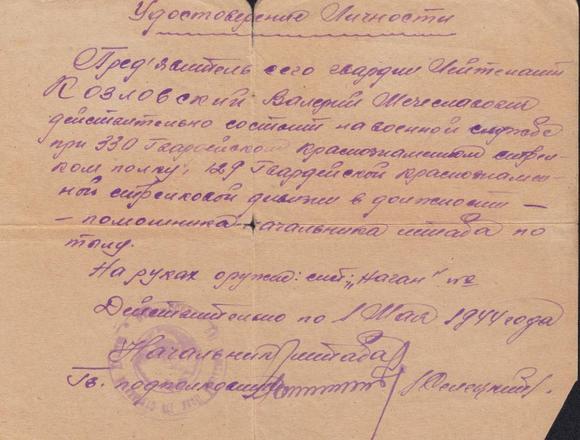 Удостоверение Личности
Пред'явитель сего гвардии Лейтенант
Козловский Валерий Мечеславович
действительно состоит на военной службе
при 330 Гвардейском краснознаменном стрел-
ком полку, 129 Гвардейской краснознамен-
ной стрелковой дивизии в должности —
— помощника начальника штаба по
тылу.
На руках оружие: сист. "Наган" №
Действительно по 1 Мая 1944 года
Начальник штаба
Гв. подполковник